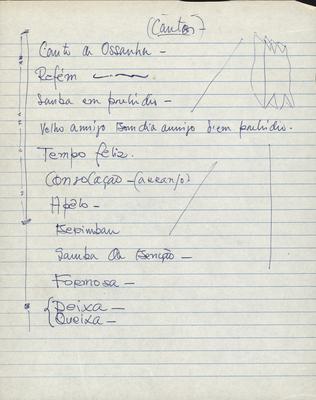 (Cantos)-
Canto de Ossanha -
Refém
Samba em prelúdio -
Velho amigo Bom dia amigo Bem prelúdio.
Tempo féliz.
Consolação - (arranjo)
Apêlo -
Berimbau
Samba da Benção -
Formosa -
Deixa -
Queixa -